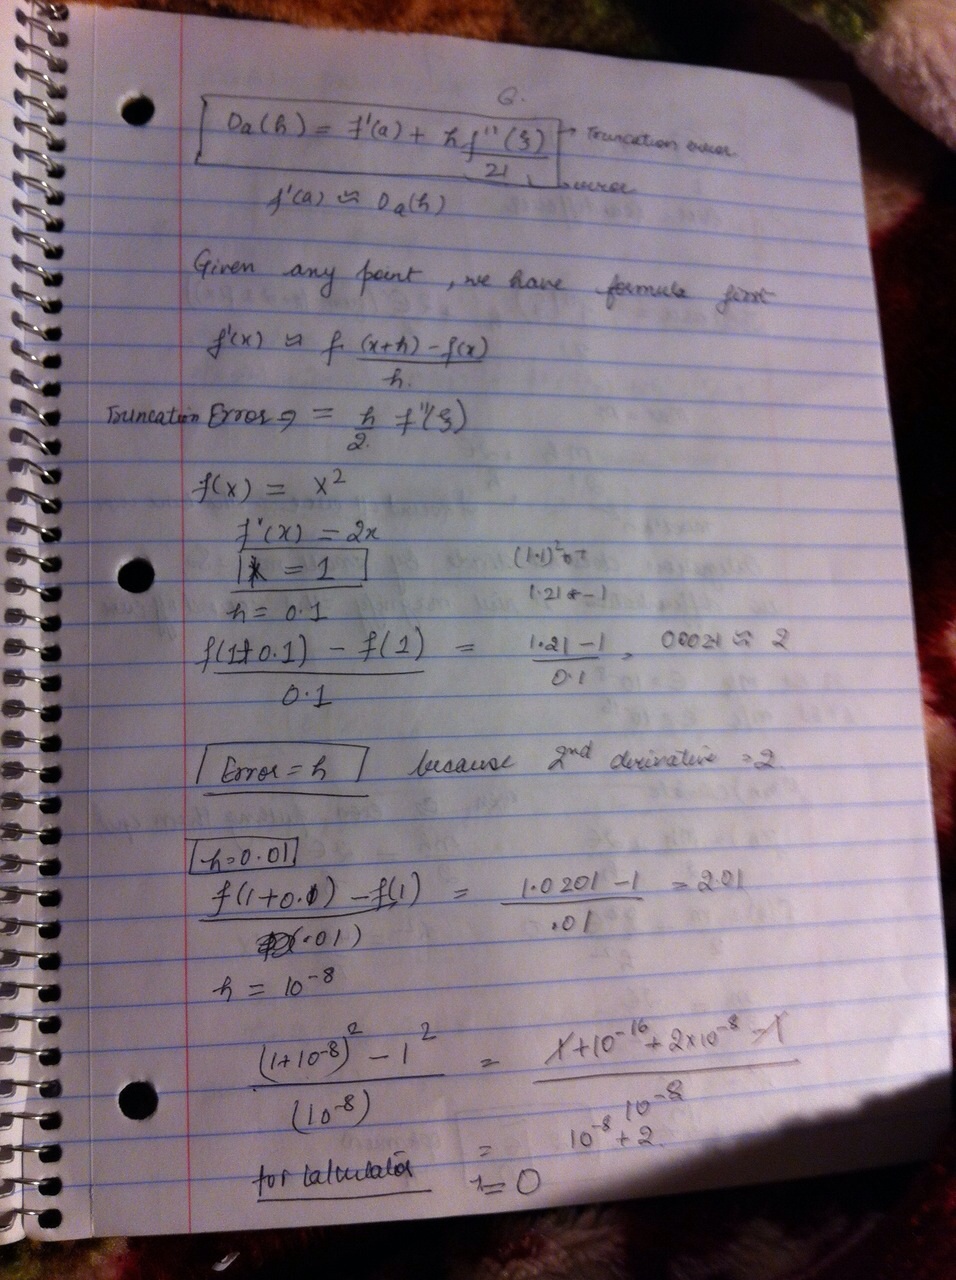 6.
Da(h) = f'(a) + h f''(ξ) / 2! → Truncation error.
error
f'(a) ≈ Da(h)
Given any point, we have formula first
f'(x) ≈ f (x+h) - f(x) / h.
Truncation Error ⇒ = h/2 f''(ξ)
f(x) = x²
f'(x) = 2x
x = 1 (1.1)²
h = 0.1 1.21 - 1
f(1+0.1) - f(1) / 0.1 = 1.21 - 1 / 0.1 ≈ 2
Error = h because 2nd derivative = 2
h = 0.01
f(1+0.01) - f(1) / (.01) = 1.0201 - 1 / .01 = 2.01
h = 10⁻⁸
(1+10⁻⁸)² - 1² / (10⁻⁸) = 1 + 10⁻¹⁶ + 2×10⁻⁸ - 1 / 10⁻⁸
= 10⁻⁸ + 2.
for calculator = 0